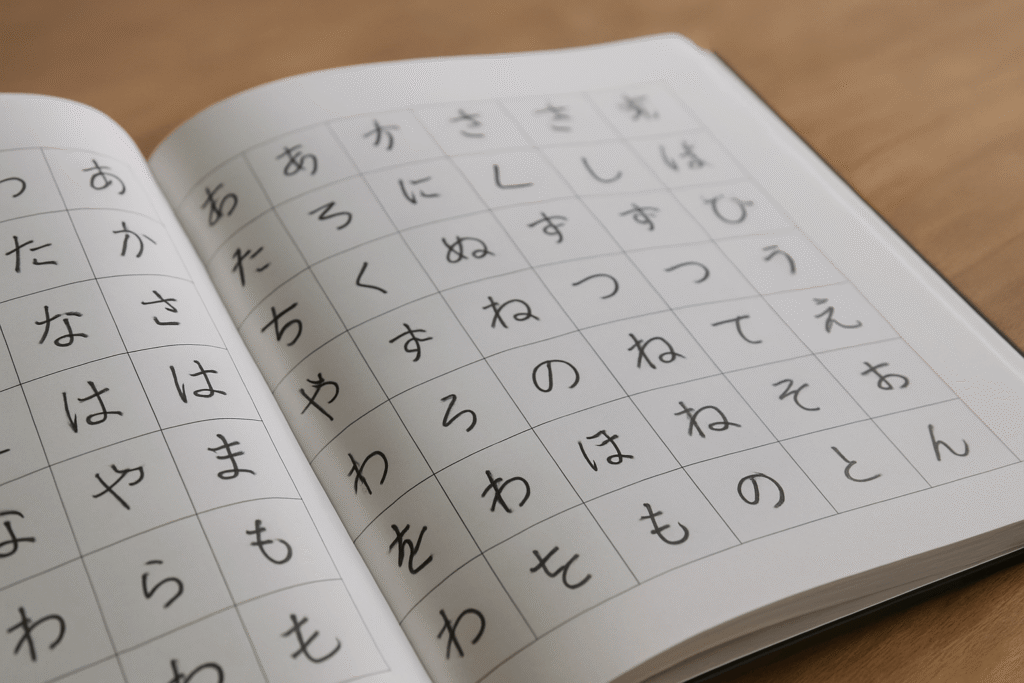 つ あ
た か
な さ
は は
や ま
な ら も
わ わ も
あ あ か さ さ
た ろ に し し は
ち く ぬ す す ひ
や す ね つ つ う
わ ろ の ね て え
を わ ほ ね そ お
わ も の と ん